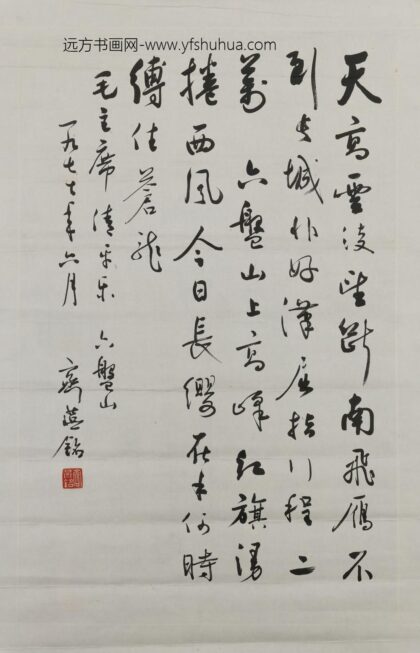 远方书画网-www.yfshuhua.com
天高雲淡望斷南飛雁不
到长城非好漢屈指行程二
萬 六盤山上高峰红旗漫
捲西風今日長纓在手何時
縛住蒼龍
毛主席清平乐 六盤山
一九七七年六月 齊燕銘